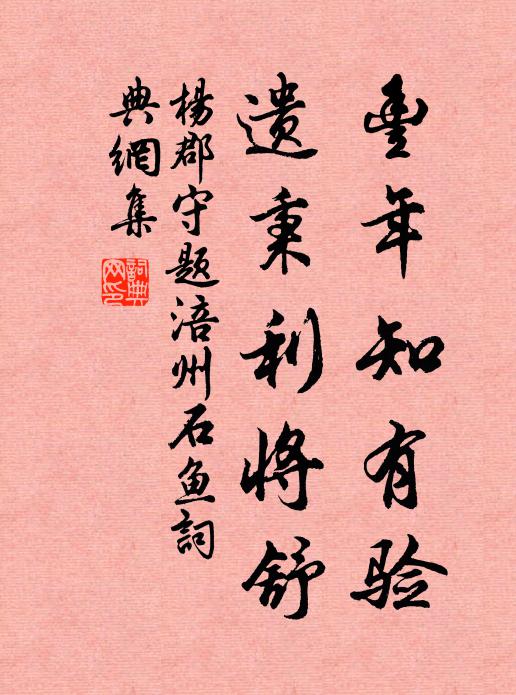 豊年知有验
遗秉利将舒
杨郡守题涪州石鱼詞
典網集
詞典
网印